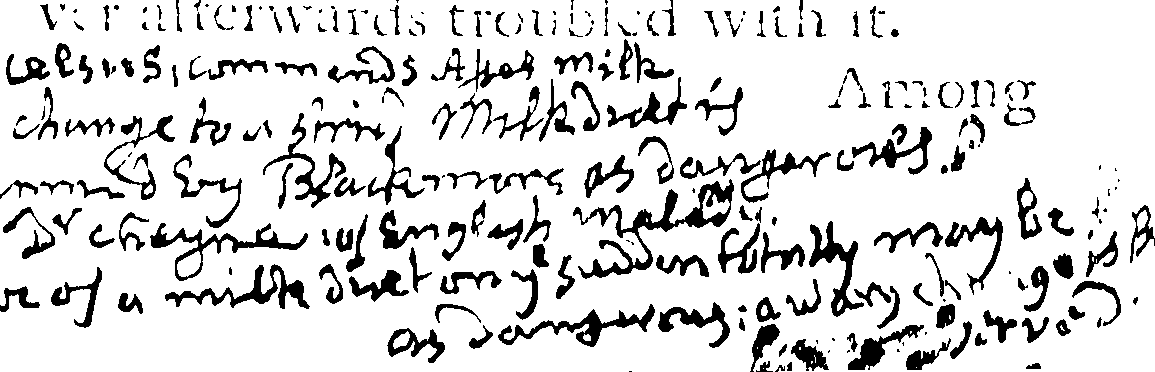 ver afterwards troubled with it.
celsus, commends Asses milk
Among
change to a strict Milk diet is
by Blackmore as dangerous. p
Dr cheyne's English malady.
of a milk diet on ye sudden totally may be
as dangerous; a wary is